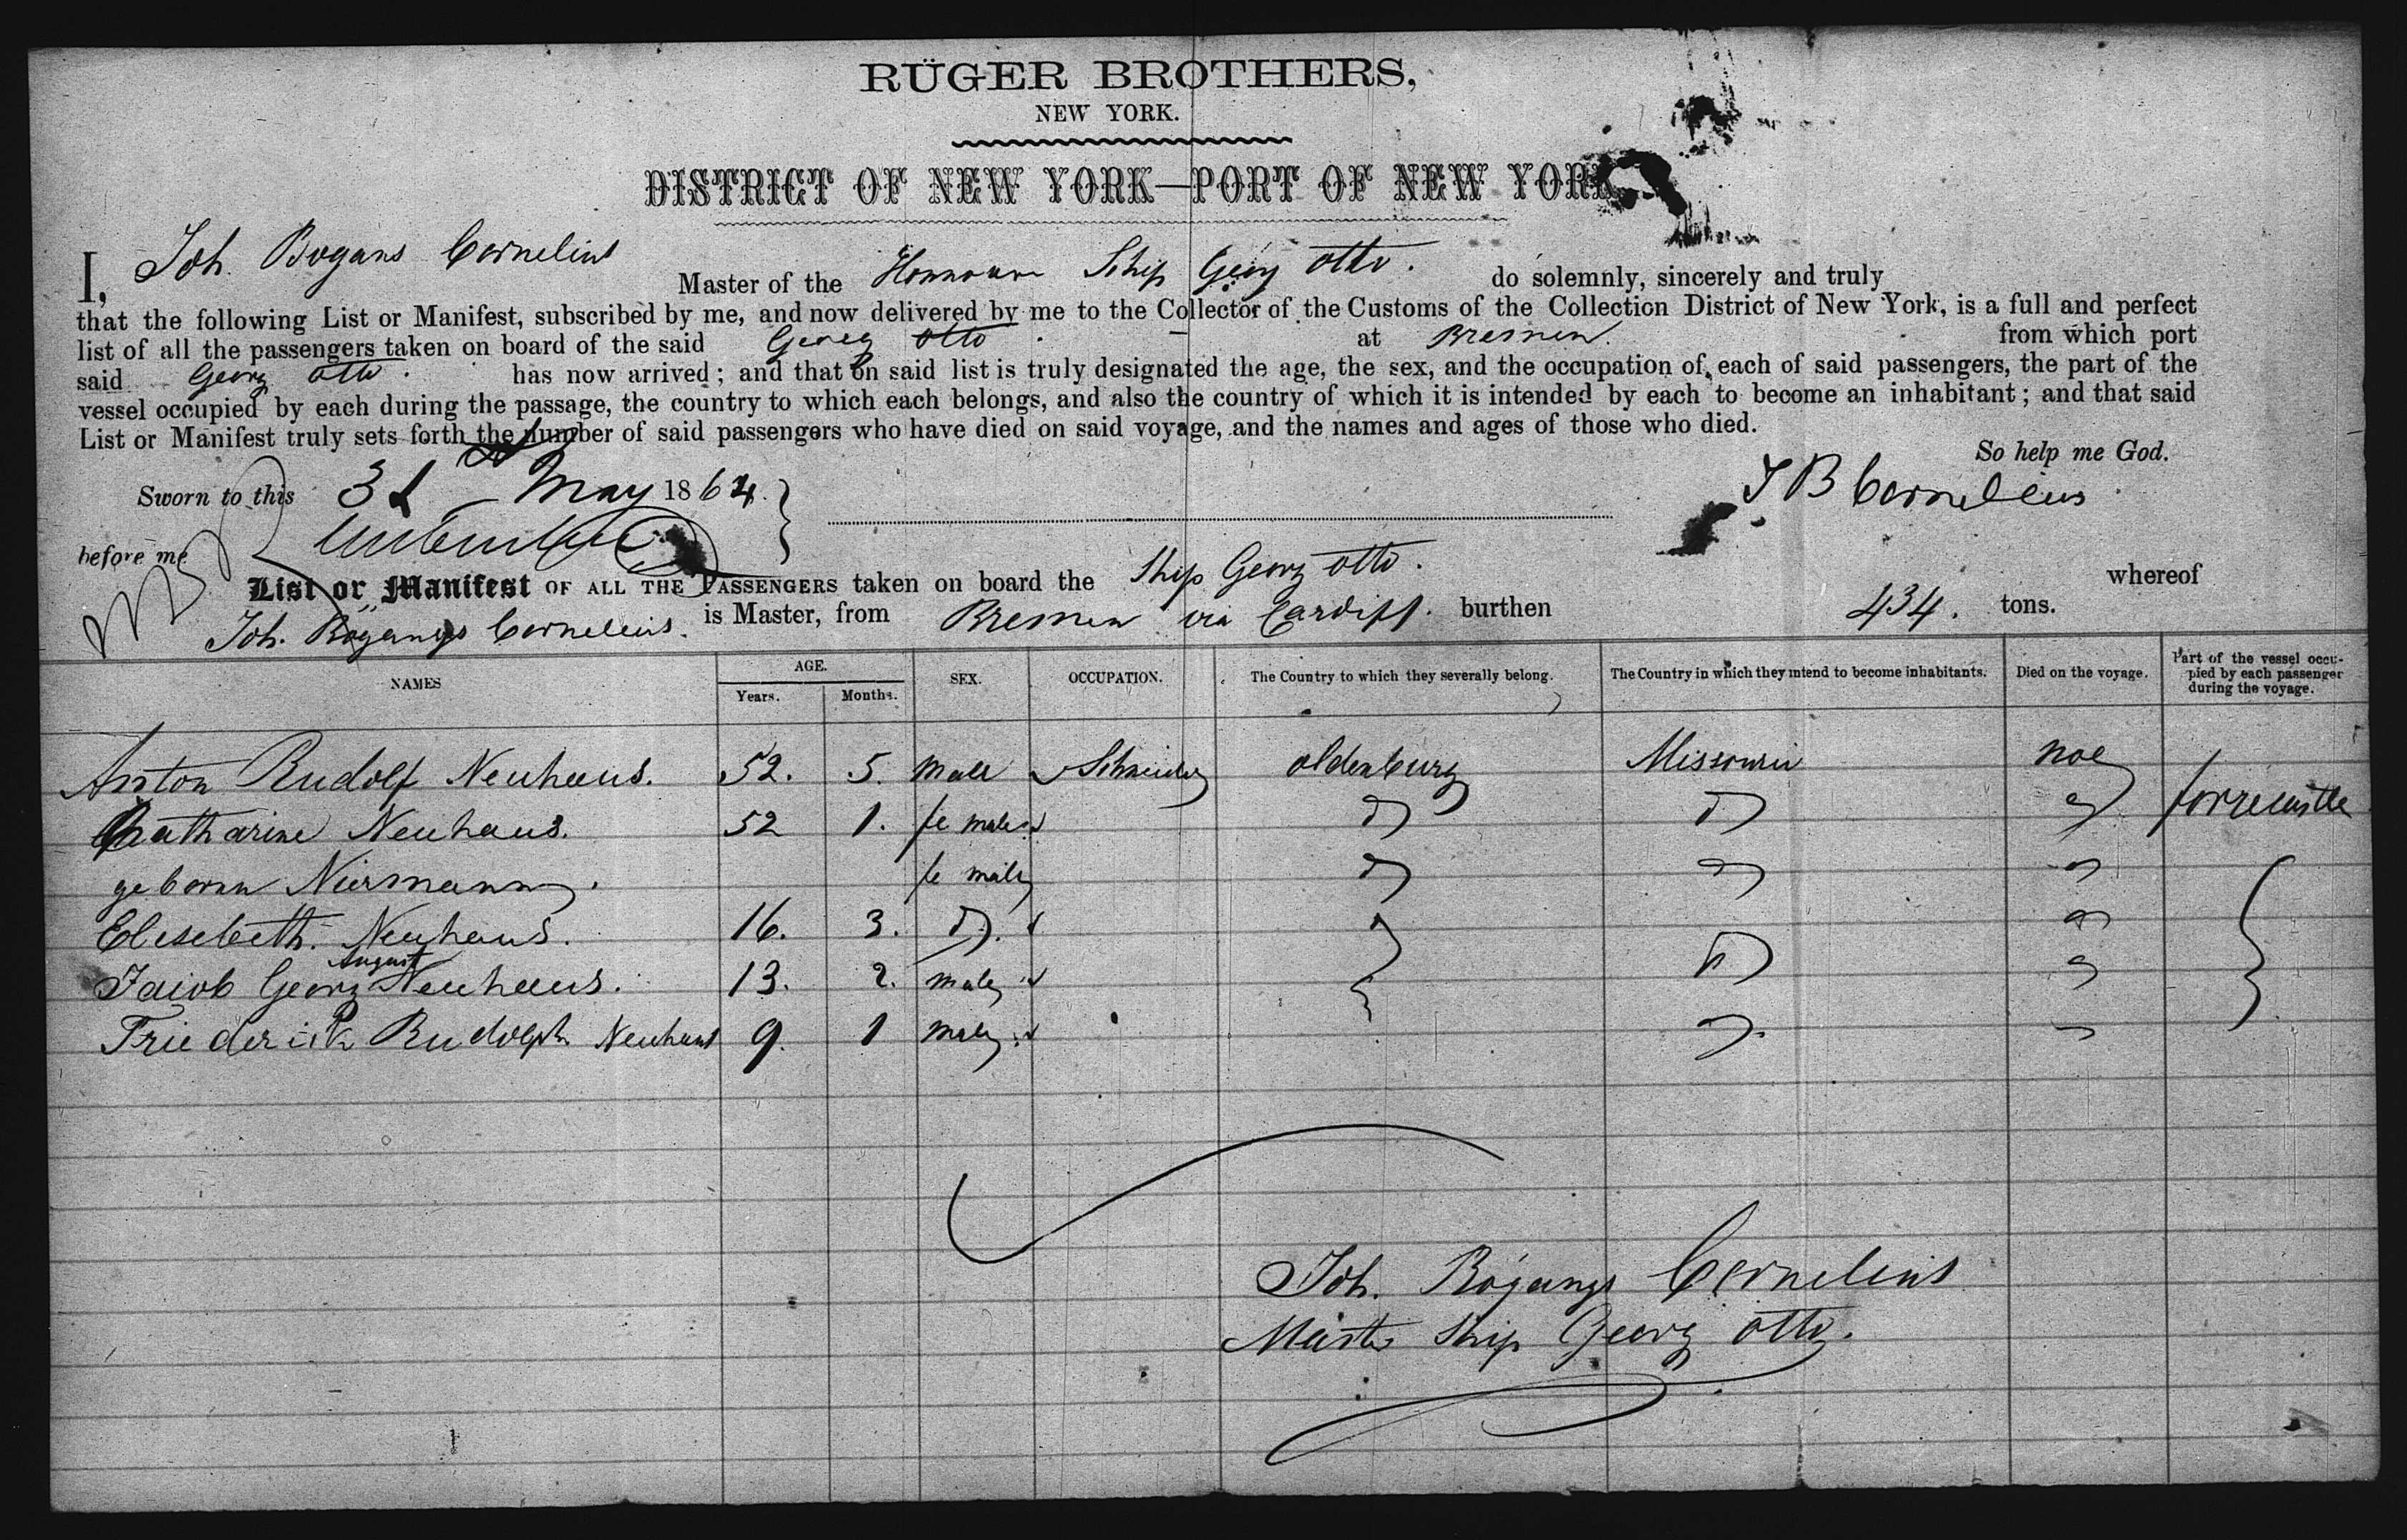 RÜGER BROTHERS,
NEW YORK.
DISTRICT OF NEW YORK—PORT OF NEW YORK
I, Joh. Bogans Cornelius Master of the Ship Georg Otto. do solemnly, sincerely and truly
that the following List or Manifest, subscribed by me, and now delivered by me to the Collector of the Customs of the Collection District of New York, is a full and perfect
list of all the passengers taken on board of the said Georg Otto at Bremen. from which port
said Georg Otto. has now arrived; and that on said list is truly designated the age, the sex, and the occupation of each of said passengers, the part of the
vessel occupied by each during the passage, the country to which each belongs, and also the country of which it is intended by each to become an inhabitant; and that said
List or Manifest truly sets forth the number of said passengers who have died on said voyage, and the names and ages of those who died.
So help me God.
Sworn to this 31st May 1864. J B Cornelius
before me
List or Manifest OF ALL THE PASSENGERS taken on board the Ship Georg Otto. whereof
Joh. Rogangs Cornelius. is Master, from Bremen via Cardiff. burthen 434. tons.
NAMES AGE. Years. Months. SEX. OCCUPATION. The Country to which they severally belong. The Country in which they intend to become inhabitants. Died on the voyage. Part of the vessel occu-pied by each passenger during the voyage.
Anton Rudolf Neuhaus. 52. 5. male Schneider oldenburg Missouri non forrecastle
Catharine Neuhaus. 52 1. fe male
geboren Niermann. fe male
Elisebeth. Neuhaus. 16. 3. do.
Jacob Georg August Neuhaus. 13. 2. male
Friederick Rudolph Neuhaus 9. 1 male
Joh. Rogangs Cornelius
Master Ship Georg Otto.